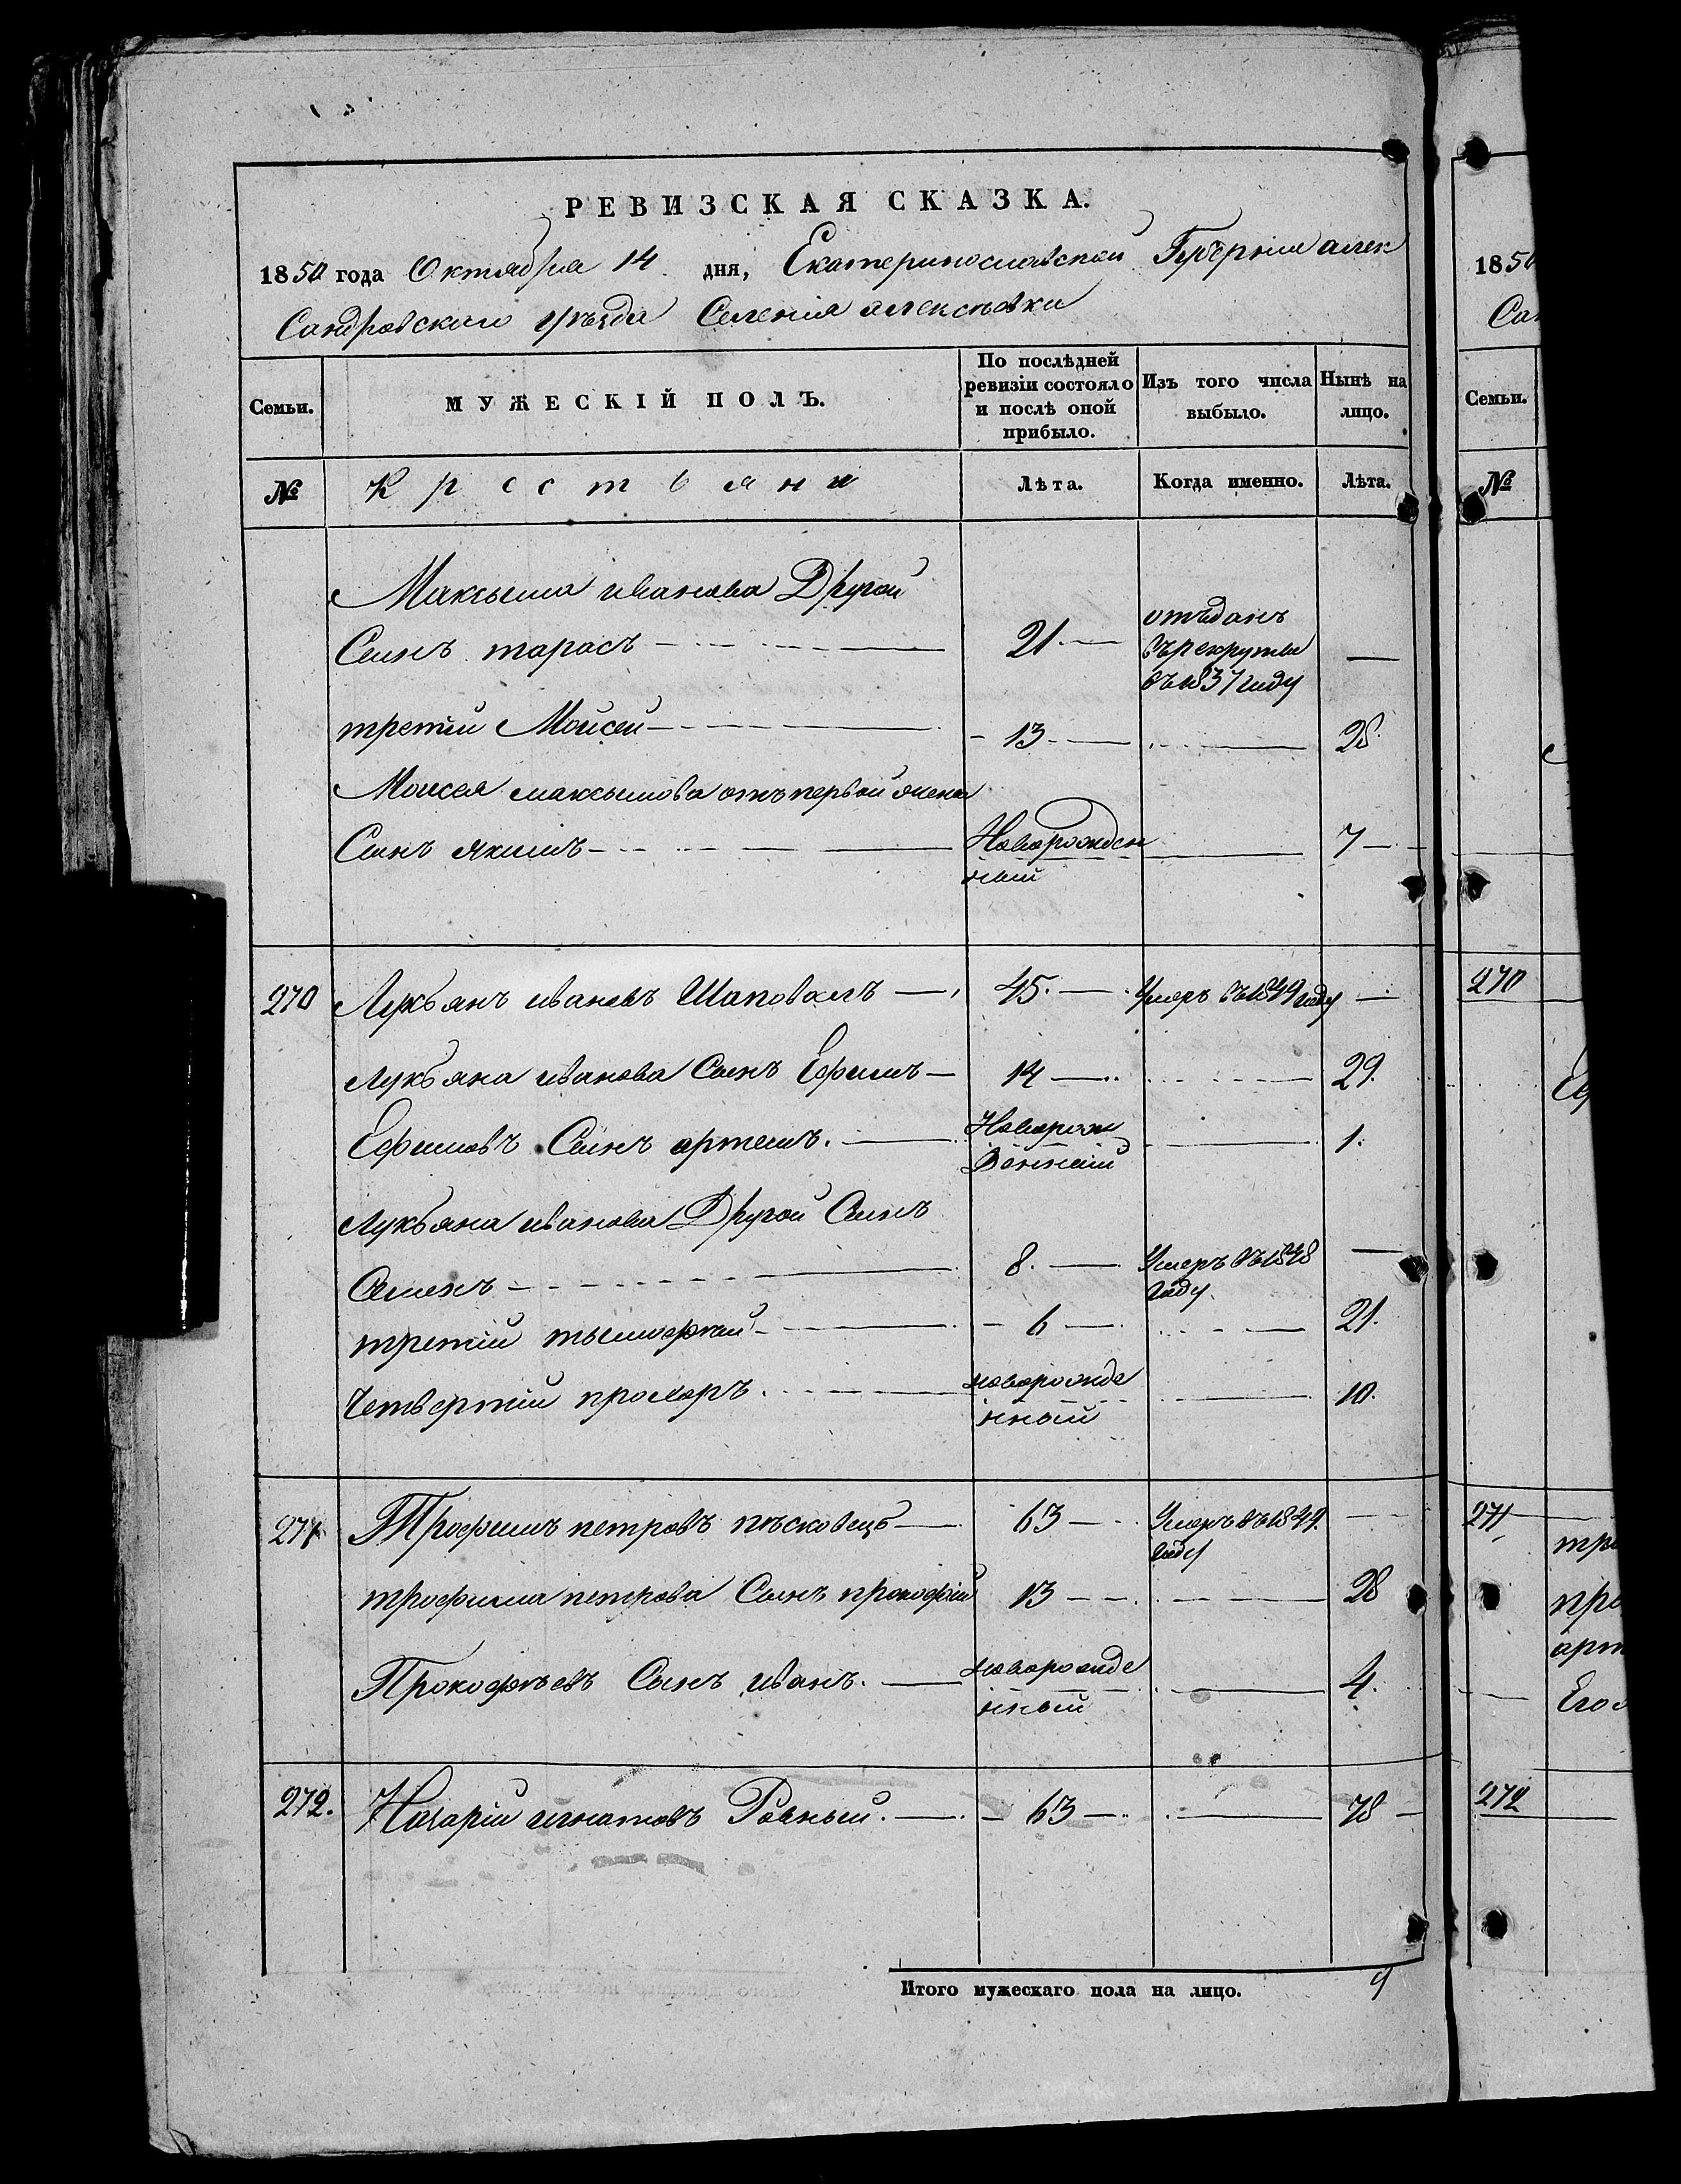 РЕВИЗСКАЯ СКАЗКА.
1850 года Октября 14 дня, Екатеринославской Губернiи алек
Сандровскаго уѣзда Селенiя алексѣевки
Семьи. МУЖЕСКІЙ ПОЛЪ. По послѣдней ревизіи состояло и послѣ оной прибыло. Изъ того числа выбыло. Нынѣ на лицо.
№ Крестьяни Лѣта. Когда именно. Лѣта.
Максыма иванова Другой
Сынъ тарасъ 21 отъданъ въ рекруты въ 1837 году —
третiй Мойсей 13 28
Моисея максымова отъ первой жены
Сынъ якимъ Новорожденный 7
270 Лукьянъ ивановъ Шаповалъ 45. Умеръ въ 1849 году —
Лукьяна иванова Сынъ Ефимъ 14 29.
Ефимовъ Сынъ артемъ. Новорожденный 1.
Лукьяна иванова Другой Сынъ
Семенъ 8. Умеръ въ 1848 году —
третiй тымофтей 6 21.
Четвертiй прохоръ. новорожденный 10.
271 Трофимъ петровъ пѣсковецъ 63 Умеръ въ 1849. году —
трофима петрова Сынъ прокофiй 13 28
Прокофьевъ Сынъ иванъ. новорожденный 4.
272. Назарiй игнатовъ Ровный. 63 78
Итого мужескаго пола на лицо. 9
185
Сан
Семьи.
№
270
Еф
271
тро
про
арт
Его
272